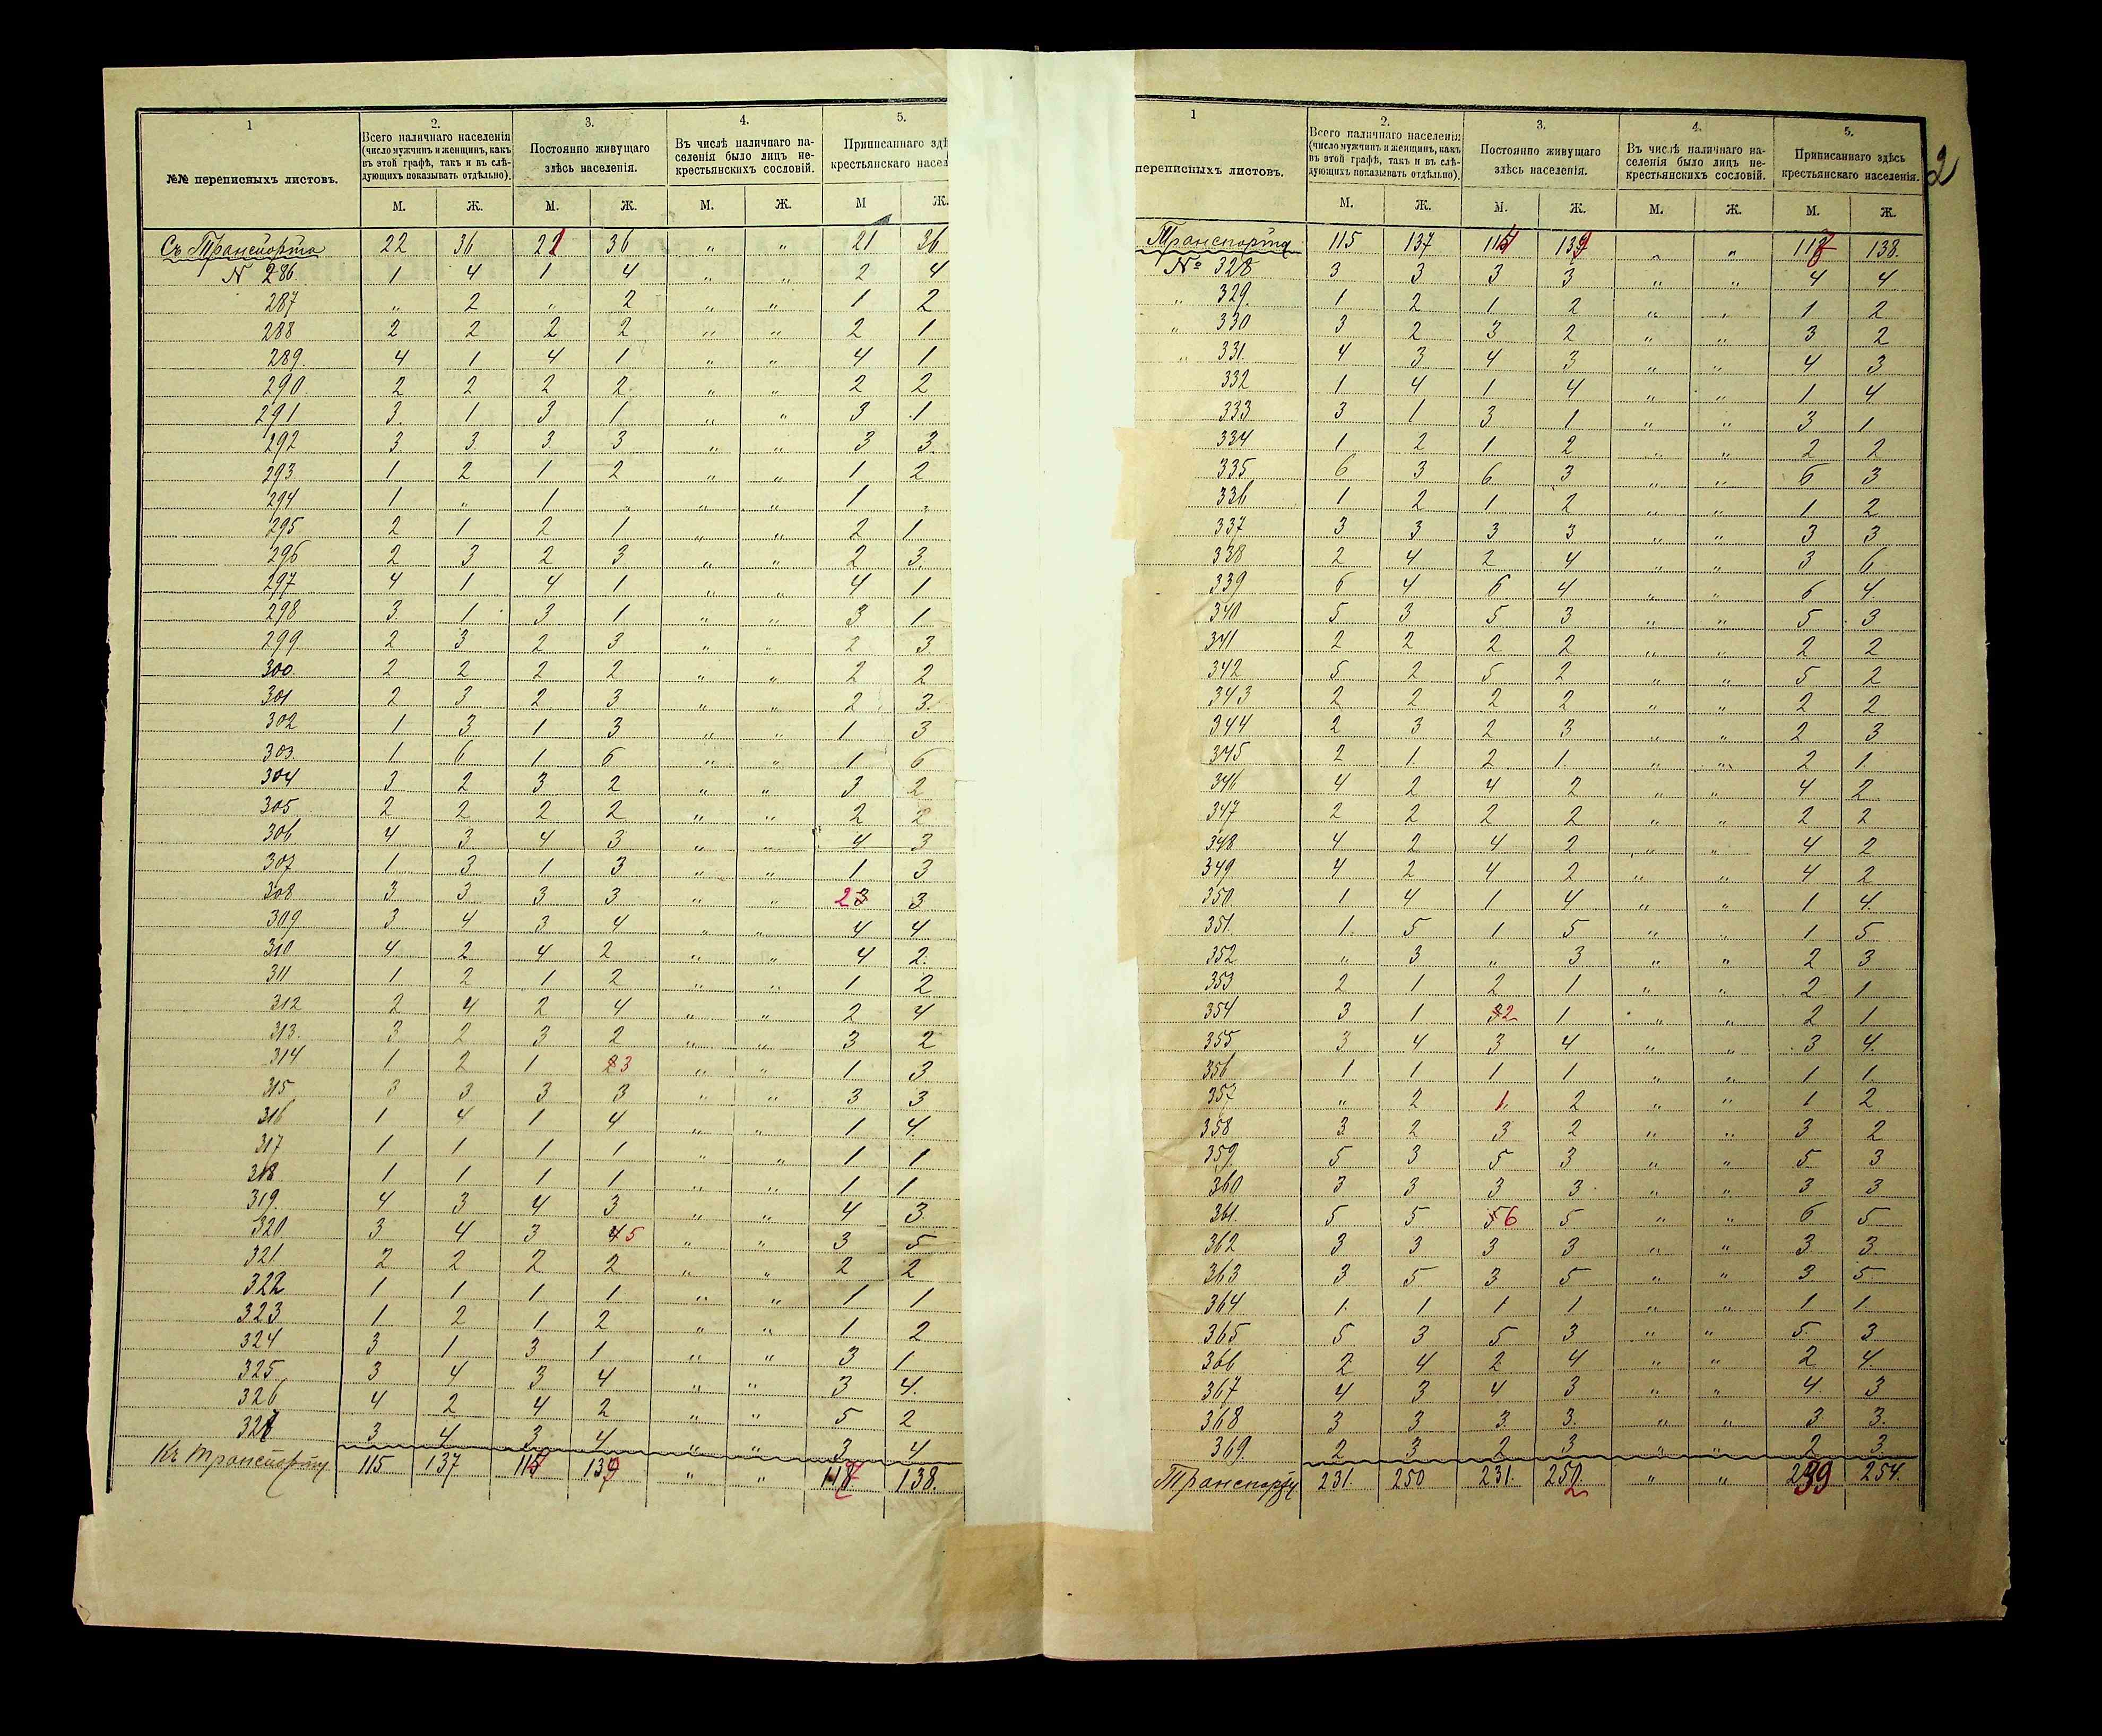 1 2. 3. 4. 5.
№№ переписныхъ листовъ. Всего наличнаго населенія (число мужчинъ и женщинъ, какъ въ этой графѣ, такъ и въ слѣдующихъ показывать отдѣльно). Постоянно живущаго здѣсь населенія. Въ числѣ наличнаго населенія было лицъ не-крестьянскихъ сословій. Приписаннаго здѣ крестьянскаго насел
М. Ж. М. Ж. М. Ж. М Ж.
Съ Транспорта 22 36 21 36 " " 21 36
N 286. 1 4 1 4 " " 2 4
287 " 2 " 2 " " 1 2
288 2 2 2 2 " " 2 1
289. 4 1 4 1 " " 4 1
290. 2 2 2 2 " " 2 2
291 3. 1 3 1 " " 3 1
292 3 3 3 3 " " 3 3.
293. 1 2 1 2 " " 1 2
294 1 " 1 " " " 1 "
295 2 1 2 1 " " 2 1
296 2 3 2 3 " " 2 3.
297 4 1 4 1 " " 4 1
298 3. 1 3 1 " " 3 1
299 2 3 2 3 " " 2 3
300. 2 2 2 2 " " 2 2
301 2 3 2 3 " " 2 3.
302 1 3 1 3 " " 1 3
303. 1 6 1 6 " " 1 6
304 3 2 3 2 " " 3 2
305 2 2 2 2 " " 2 2
306. 4 3 4 3 " " 4 3
307 1 3 1 3 " " 1 3
308 3 3 3 3 " " 23 3
309 3 4 3 4 " " 4 4
310 4 2 4 2 " " 4 2.
311 1 2 1 2 " " 1 2
312 2 4 2 4 " " 2 4
313. 3 2 3 2 " " 3 2
314 1 2 1 23 " " 1 3
315 3 3 3 3 " " 3 3
316 1 4 1 4 " " 1 4.
317 1 1 1 1 " " 1 1
318 1 1 1 1 " " 1 1
319. 4 3 4 3 " " 4 3
320. 3 4 3 45 " " 3 5
321 2 2 2 2 " " 2 2
322 1 1 1 1 " " 1 1
323 1 2 1 2 " " 1 2
324 3 1 3 1 " " 3 1
325 3 4 3 4 " " 3 4.
326 4 2 4 2 " " 5 2
327 3 4 3 4 " " 3 4
Къ Транспорту 115 137 115 139 " " 117 138.
2
1 2. 3. 4. 5.
переписныхъ листовъ. Всего наличнаго населенія (число мужчинъ и женщинъ, какъ въ этой графѣ, такъ и въ слѣдующихъ показывать отдѣльно). Постоянно живущаго здѣсь населенія. Въ числѣ наличнаго населенія было лицъ не-крестьянскихъ сословій. Приписаннаго здѣсь крестьянскаго населенія.
М. Ж. М. Ж. М. Ж. М. Ж.
Транспорта 115 137 114 139 " " 117 138.
№ 328 3 3 3 3 " " 4 4
" 329. 1 2 1 2 " " 1 2
" 330 3 2 3 2 " " 3 2
" 331. 4 3 4 3 " " 4 3
332 1 4 1 4 " " 1 4
333 3 1 3 1 " " 3 1
334 1 2 1 2 " " 2 2
335 6 3 6 3 " " 6 3
336 1 2 1 2 " " 1 2
337 3 3 3 3 " " 3 3
338 2 4 2 4 " " 3 6
339 6 4 6 4 " " 6 4.
340 5 3 5 3 " " 5 3
341 2 2 2 2 " " 2 2
342 5 2 5 2 " " 5 2
343 2 2 2 2 " " 2 2
344 2 3 2 3 " " 2 3
345 2 1 2 1 " " 2 1
346 4 2 4 2 " " 4 2
347 2 2 2 2 " " 2 2
348 4 2 4 2 " " 4 2
349 4 2 4 2 " " 4 2
350. 1 4 1 4 " " 1 4.
351. 1. 5 1 5 " " 1 5
352 " 3 " 3 " " 2 3
353 2 1 2 1 " " 2 1
354 3 1 32 1 " " 2 1
355 3 4 3 4 " " 3 4.
356 1 1 1 1 " " 1 1.
357 " 2 1 2 " " 1 2
358 3 2 3 2 " " 3 2
359. 5 3 5 3 " " 5 3
360 3 3 3 3 " " 3 3
361. 5 5 56 5 " " 6 5
362 3 3 3 3 " " 3 3
363 3 5 3 5 " " 3 5
364 1. 1 1 1 " " 1 1
365 5 3 5 3 " " 5 3
366 2 4 2 4 " " 2 4.
367 4 3 4 3 " " 4 3
368 3 3 3 3. " " 3 3.
369. 2 3 2 3 " " 2 3
Транспорту 231 250 231. 252 " " 239 254.